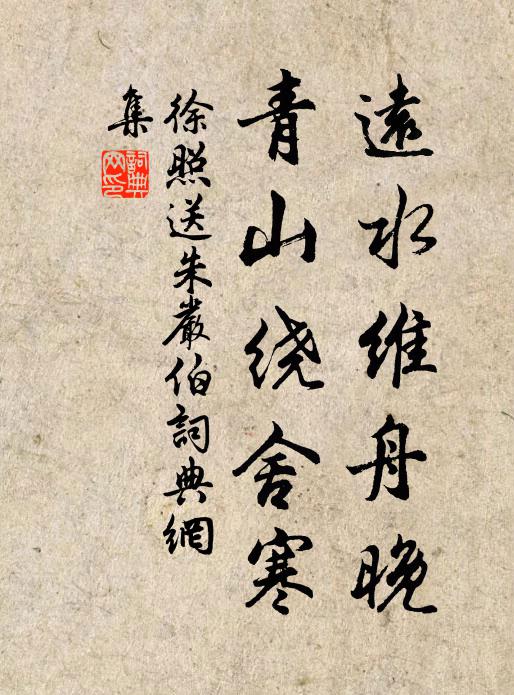 遠水维舟晚
青山绕舍寒
徐照送朱嚴伯詞典網
集
詞典網印